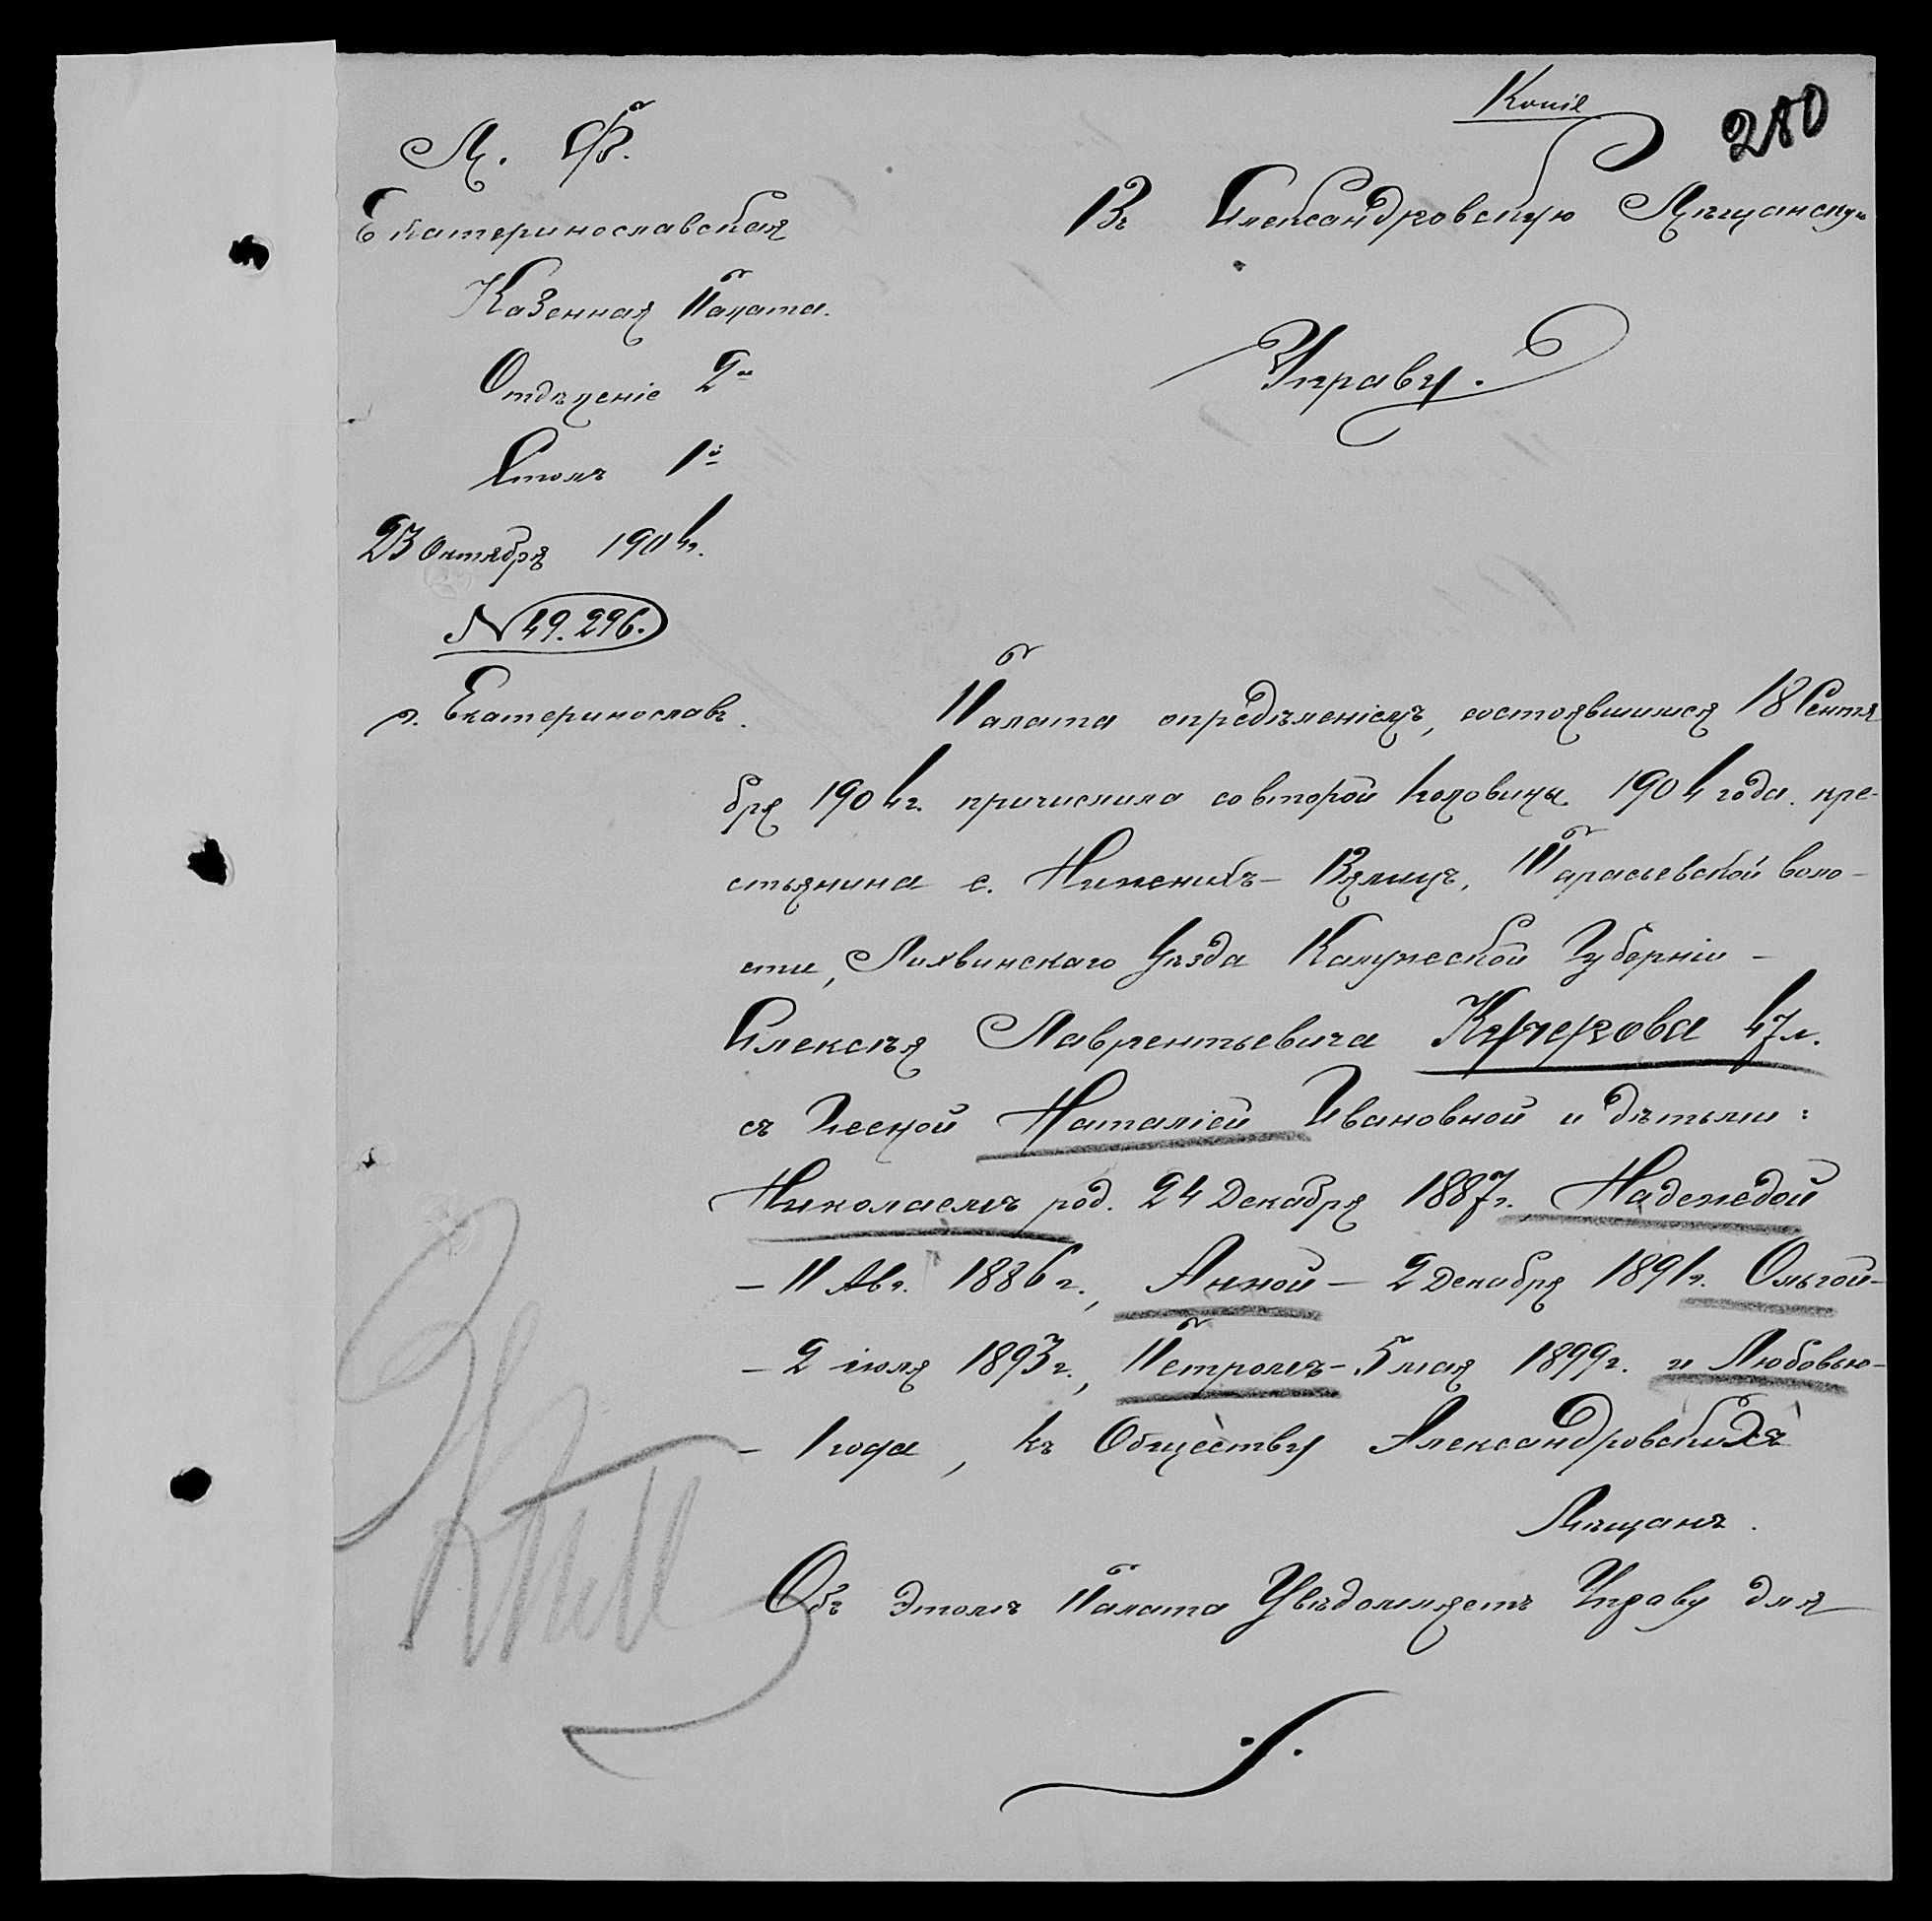 Копія
280
М. Ф.
Екатеринославская
Казенная Палата.
Отдѣленіе 2е
Столъ 1й
23 Октября 1904г.
N 49.296.
г. Екатеринославъ.
Въ Александровскую Мѣщанскую
Управу.
Палата опредѣленіемъ, состоявшимся 18 Сентя
бря 1904г. причислила со второй половины 1904 года кре-
стьянина с. Нижнихъ- Вялицъ, Тарасьевской воло-
сти, Лихвинскаго Уѣзда Калужской Губерніи -
Алексѣя Лаврентьевича Кучерова 47 л.
съ Женой Наталіей Ивановной и дѣтьми:
Николаемъ род. 24 Декабря 1887г., Надеждой
- 11 Авг. 1886г., Анной - 2 Декабря 1891г. Ольгой-
- 2 іюля 1893г., Петромъ - 5 мая 1899г. и Любовью-
- 1 года, къ Обществу Александровскихъ
Мѣщанъ.
Объ этомъ Палата Увѣдомляетъ Управу для